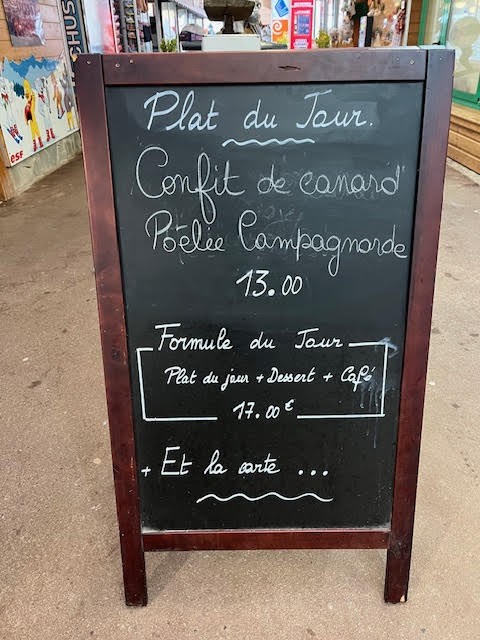 Plat du Jour.
Confit de canard
Poêlée Campagnarde
13.00
Formule du Jour
Plat du jour + Dessert + Café
17.00€
+ Et la carte ...
esf